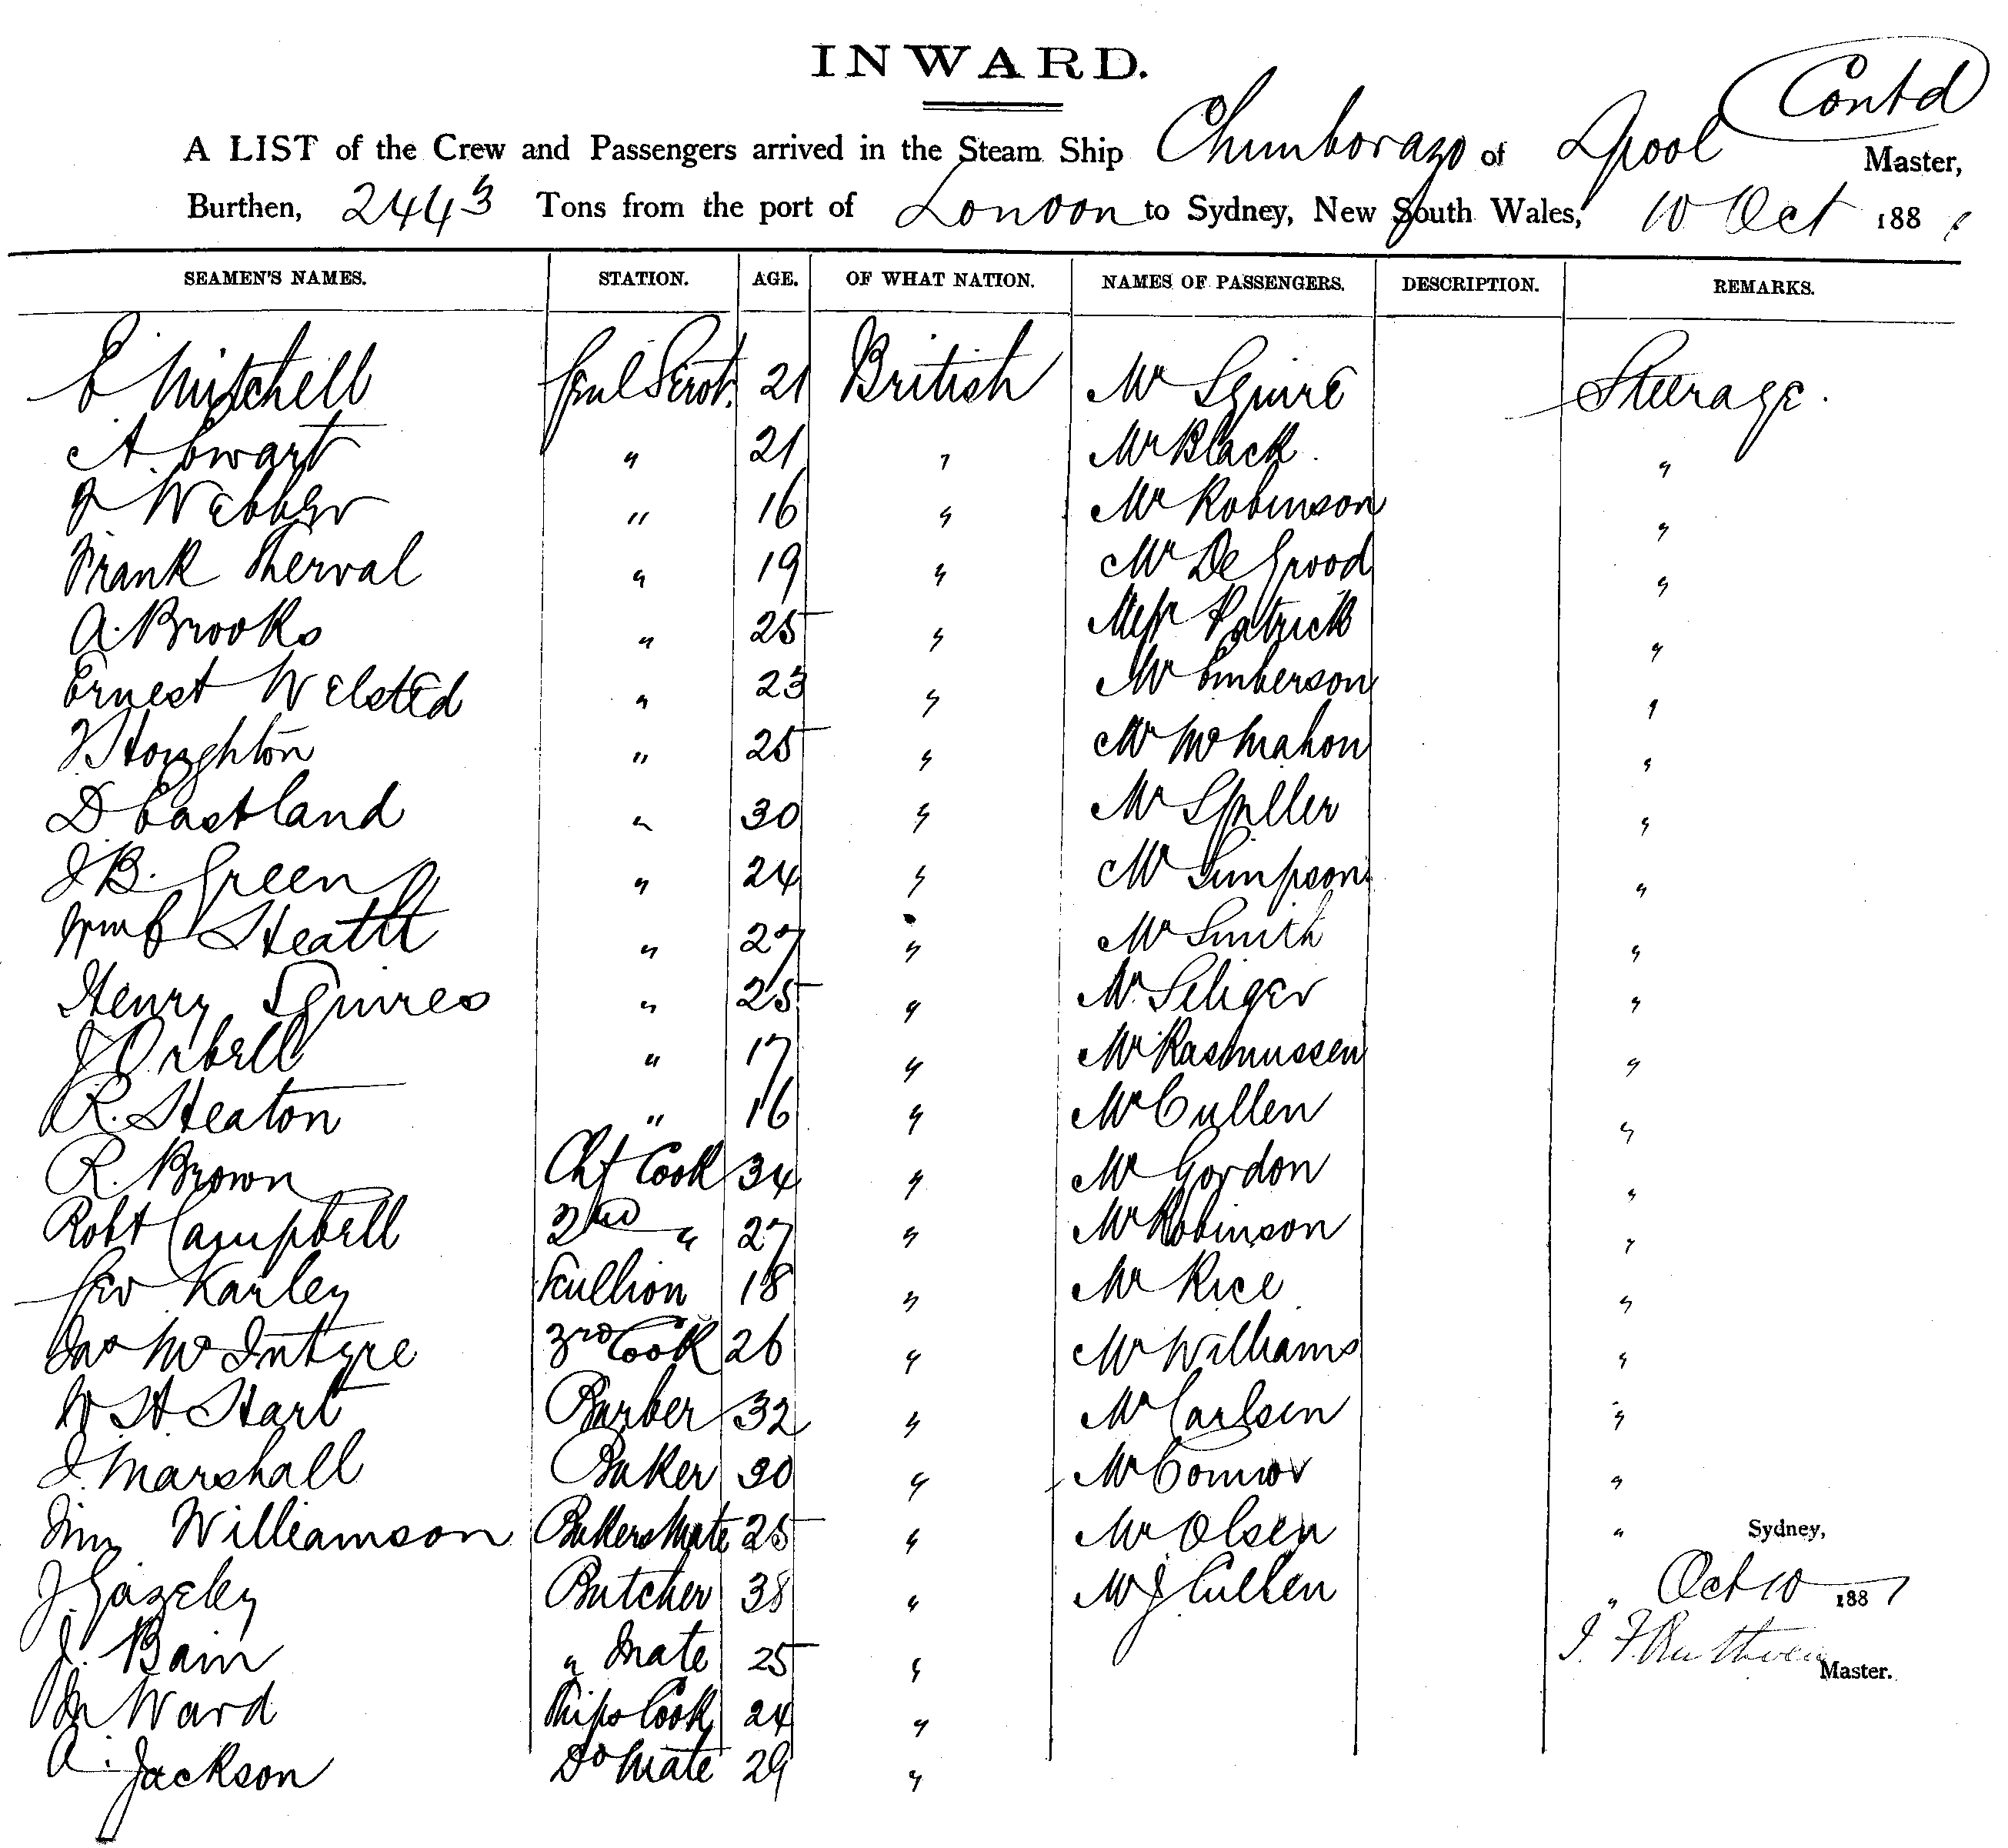 INWARD.
Contd
A LIST of the Crew and Passengers arrived in the Steam Ship Chimborazo of Lpool Master,
Burthen, 2443 Tons from the port of London to Sydney, New South Wales, 10 Oct 188
SEAMEN'S NAMES. STATION. AGE. OF WHAT NATION. NAMES OF PASSENGERS. DESCRIPTION. REMARKS.
E Mitchell Genl Servt. 21 British Mr Squire Steerage.
A. Ewart " 21 " Mr Black. "
J Webber " 16 " Mr Robinson "
Frank Therval " 19 " Mr De Grood "
A. Brooks " 25 " Patrick "
Ernest Welsted " 23 " Mr Emberson "
Houghton " 25 " Mr McMahon "
D Eastland " 30 " Mr Spiller "
J B. Green " 24 " Mr Simpson "
Wm C Heath " 27 " Mr Smith "
Henry Squires " 25 " Mr Seliger "
J Orbell " 17 " Mr Rasmussen "
R. Heaton " 16 " Mr Cullen "
R. Brown Chf Cook 34 " Mr Gordon "
Robt Campbell 2nd " 27 " Mr Robinson "
Geo Karley Scullion 18 " Mr Rice "
Jas McIntyre 3rd Cook 26 " Mr Williams "
W H Hart Barber 32 " Mr Carlsen "
J. Marshall Baker 30 " Mr Connor "
Williamson Bakers Mate 25 " Mr Olsen " Sydney,
J. Gazeley Butcher 38 " Mr J Cullen " Oct 10 1887
J. Bain " Mate 25 " J. F. Ruthven Master.
Ward Ships Cook 24 "
A. Jackson Do Mate 29 "